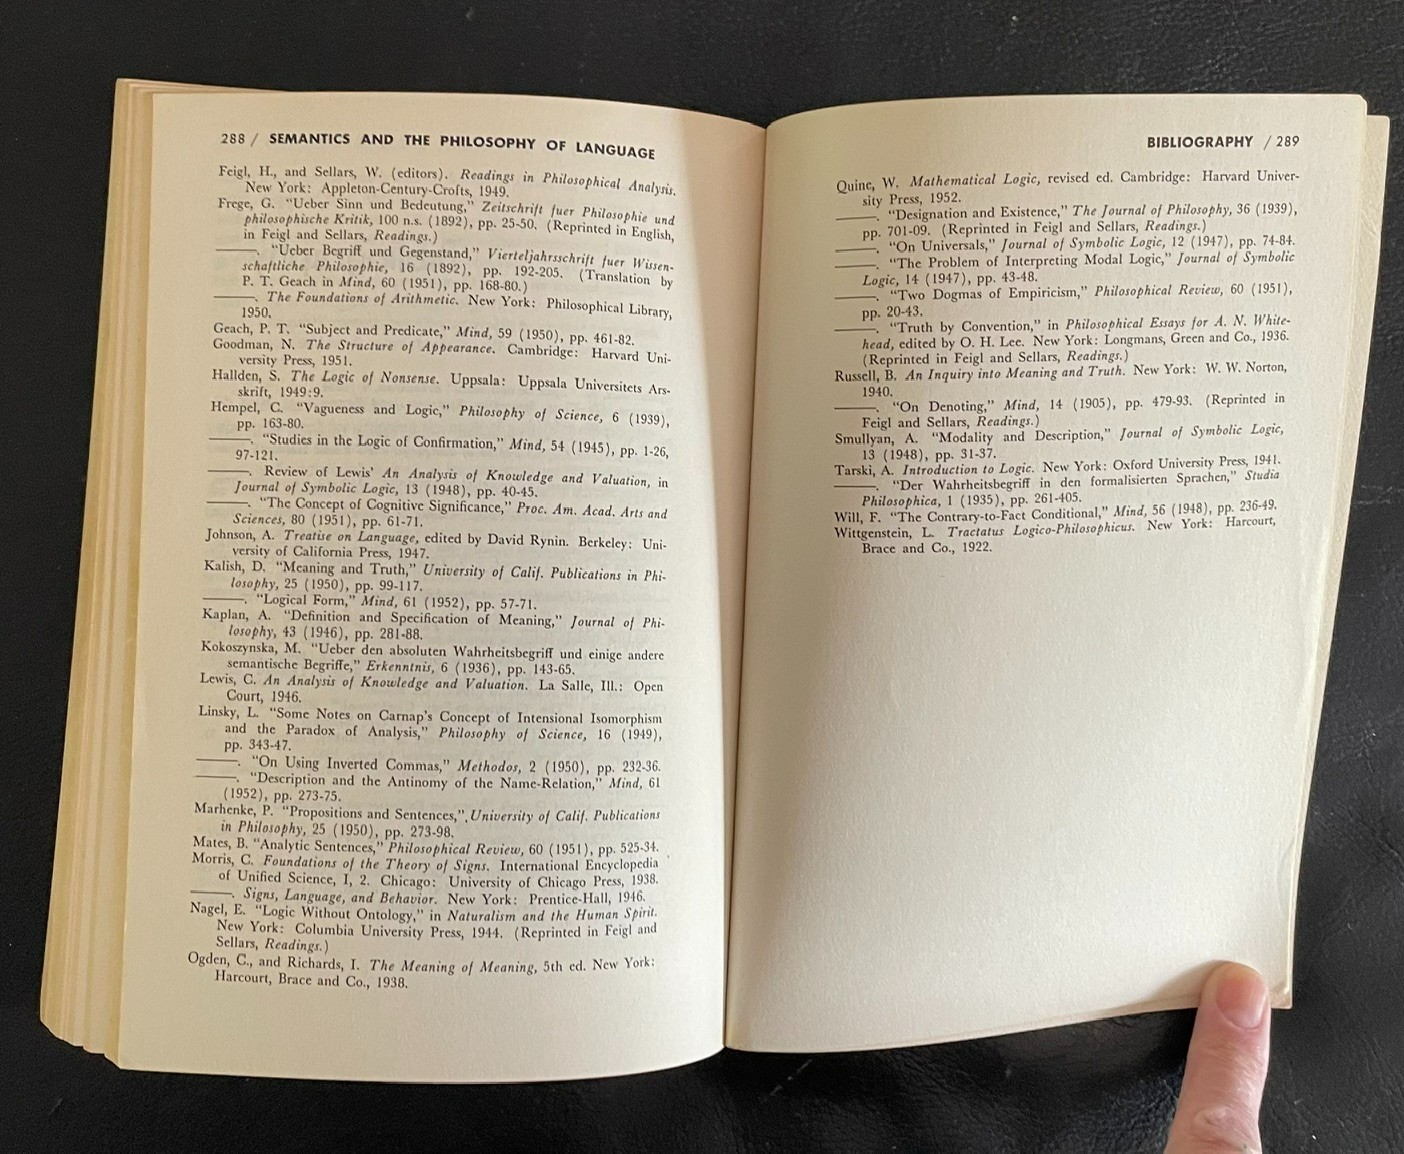 288 / SEMANTICS AND THE PHILOSOPHY OF LANGUAGE
Feigl, H., and Sellars, W. (editors). Readings in Philosophical Analysis.
New York: Appleton-Century-Crofts, 1949.
Frege, G. "Ueber Sinn und Bedeutung," Zeitschrift fuer Philosophie und
philosophische Kritik, 100 n.s. (1892), pp. 25-50. (Reprinted in English,
in Feigl and Sellars, Readings.)
———. "Ueber Begriff und Gegenstand," Vierteljahrsschrift fuer Wissen-
schaftliche Philosophie, 16 (1892), pp. 192-205. (Translation by
P. T. Geach in Mind, 60 (1951), pp. 168-80.)
———. The Foundations of Arithmetic. New York: Philosophical Library,
1950.
Geach, P. T. "Subject and Predicate," Mind, 59 (1950), pp. 461-82.
Goodman, N. The Structure of Appearance. Cambridge: Harvard Uni-
versity Press, 1951.
Hallden, S. The Logic of Nonsense. Uppsala: Uppsala Universitets Ars-
skrift, 1949:9.
Hempel, C. "Vagueness and Logic," Philosophy of Science, 6 (1939),
pp. 163-80.
———. "Studies in the Logic of Confirmation," Mind, 54 (1945), pp. 1-26,
97-121.
———. Review of Lewis' An Analysis of Knowledge and Valuation, in
Journal of Symbolic Logic, 13 (1948), pp. 40-45.
———. "The Concept of Cognitive Significance," Proc. Am. Acad. Arts and
Sciences, 80 (1951), pp. 61-71.
Johnson, A. Treatise on Language, edited by David Rynin. Berkeley: Uni-
versity of California Press, 1947.
Kalish, D. "Meaning and Truth," University of Calif. Publications in Phi-
losophy, 25 (1950), pp. 99-117.
———. "Logical Form," Mind, 61 (1952), pp. 57-71.
Kaplan, A. "Definition and Specification of Meaning," Journal of Phi-
losophy, 43 (1946), pp. 281-88.
Kokoszynska, M. "Ueber den absoluten Wahrheitsbegriff und einige andere
semantische Begriffe," Erkenntnis, 6 (1936), pp. 143-65.
Lewis, C. An Analysis of Knowledge and Valuation. La Salle, Ill.: Open
Court, 1946.
Linsky, L. "Some Notes on Carnap's Concept of Intensional Isomorphism
and the Paradox of Analysis," Philosophy of Science, 16 (1949),
pp. 343-47.
———. "On Using Inverted Commas," Methodos, 2 (1950), pp. 232-36.
———. "Description and the Antinomy of the Name-Relation," Mind, 61
(1952), pp. 273-75.
Marhenke, P. "Propositions and Sentences," University of Calif. Publications
in Philosophy, 25 (1950), pp. 273-98.
Mates, B. "Analytic Sentences," Philosophical Review, 60 (1951), pp. 525-34.
Morris, C. Foundations of the Theory of Signs. International Encyclopedia
of Unified Science, I, 2. Chicago: University of Chicago Press, 1938.
———. Signs, Language, and Behavior. New York: Prentice-Hall, 1946.
Nagel, E. "Logic Without Ontology," in Naturalism and the Human Spirit.
New York: Columbia University Press, 1944. (Reprinted in Feigl and
Sellars, Readings.)
Ogden, C., and Richards, I. The Meaning of Meaning, 5th ed. New York:
Harcourt, Brace and Co., 1938.
BIBLIOGRAPHY / 289
Quine, W. Mathematical Logic, revised ed. Cambridge: Harvard Univer-
sity Press, 1952.
———. "Designation and Existence," The Journal of Philosophy, 36 (1939),
pp. 701-09. (Reprinted in Feigl and Sellars, Readings.)
———. "On Universals," Journal of Symbolic Logic, 12 (1947), pp. 74-84.
———. "The Problem of Interpreting Modal Logic," Journal of Symbolic
Logic, 14 (1947), pp. 43-48.
———. "Two Dogmas of Empiricism," Philosophical Review, 60 (1951),
pp. 20-43.
———. "Truth by Convention," in Philosophical Essays for A. N. White-
head, edited by O. H. Lee. New York: Longmans, Green and Co., 1936.
(Reprinted in Feigl and Sellars, Readings.)
Russell, B. An Inquiry into Meaning and Truth. New York: W. W. Norton,
1940.
———. "On Denoting," Mind, 14 (1905), pp. 479-93. (Reprinted in
Feigl and Sellars, Readings.)
Smullyan, A. "Modality and Description," Journal of Symbolic Logic,
13 (1948), pp. 31-37.
Tarski, A. Introduction to Logic. New York: Oxford University Press, 1941.
———. "Der Wahrheitsbegriff in den formalisierten Sprachen," Studia
Philosophica, 1 (1935), pp. 261-405.
Will, F. "The Contrary-to-Fact Conditional," Mind, 56 (1948), pp. 236-49.
Wittgenstein, L. Tractatus Logico-Philosophicus. New York: Harcourt,
Brace and Co., 1922.